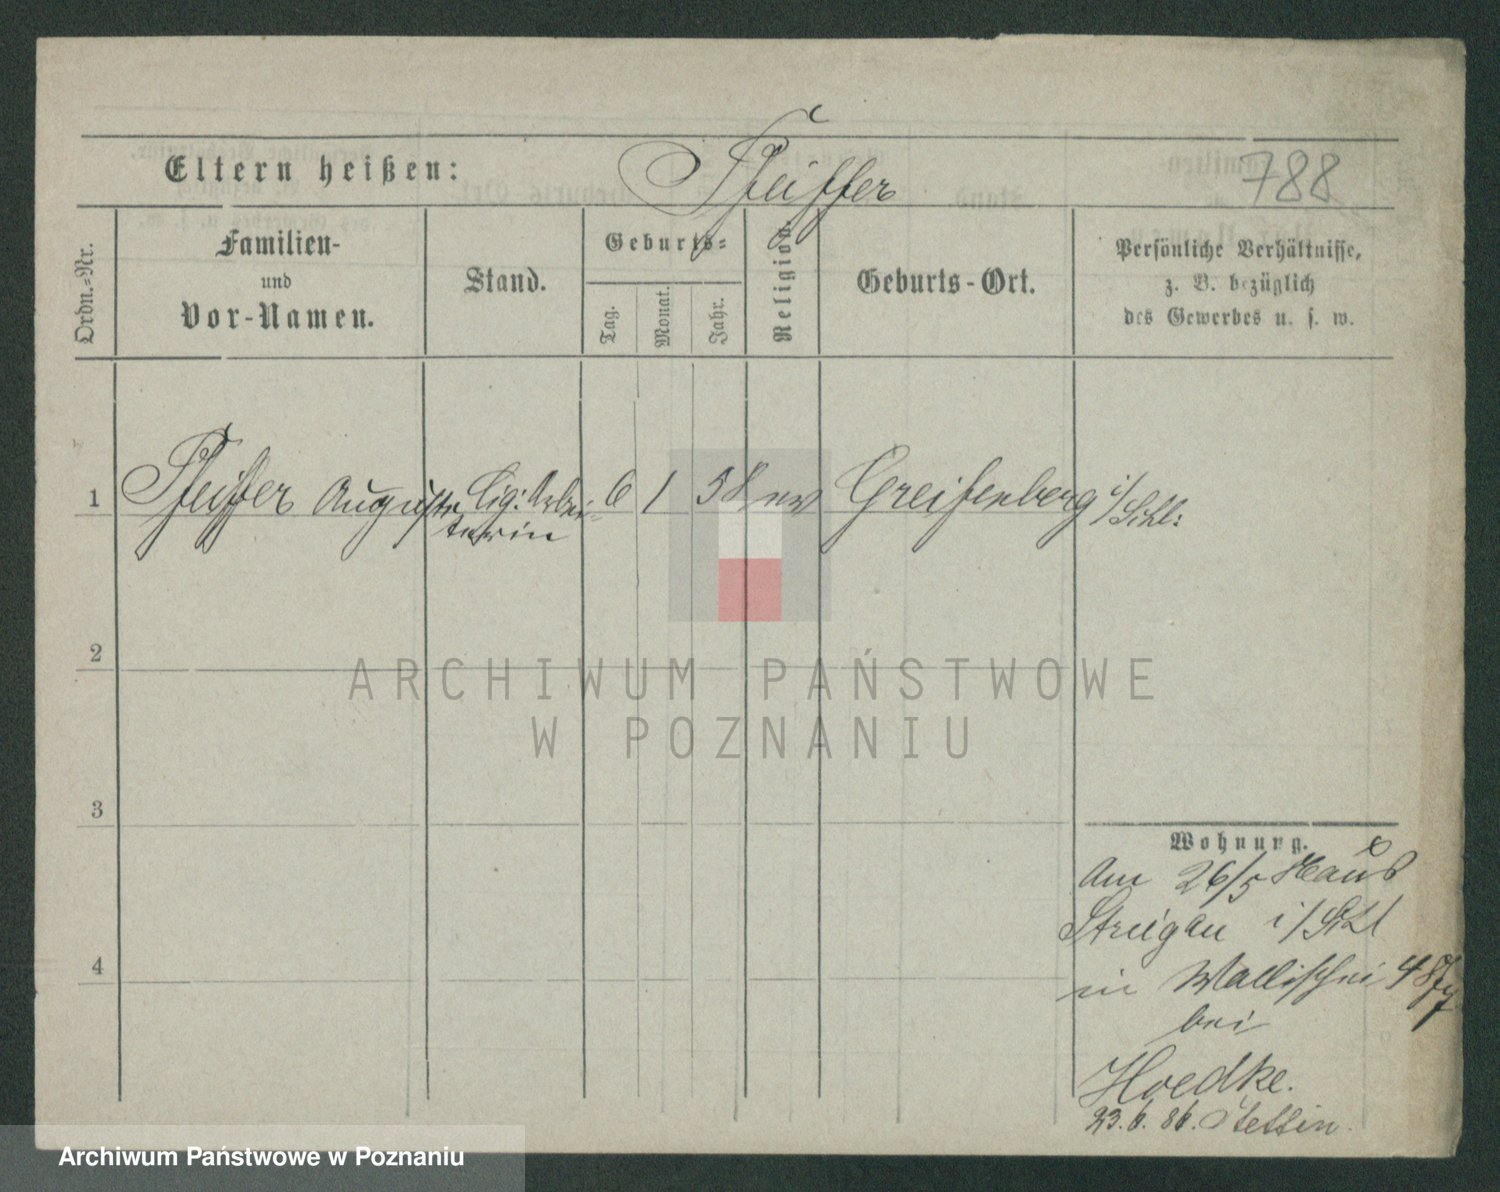 Eltern heißen: Pfeiffer 788
Ordn.-Nr.
Familien-
und
Vor-Namen.
Stand.
Geburts-
Tag.
Monat.
Jahr.
Religion.
Geburts-Ort.
Persönliche Verhältnisse,
z. B. bezüglich
des Gewerbes u. s. w.
1 Pfeiffer Auguste Cig: Arbei- 6 1 58 ev Greifenberg i/Schl:
terin
2
ARCHIWUM PAŃSTWOWE
W POZNANIU
3
Wohnung.
Am 26/5
i/Schl
4
in Wallischei
bei
Hoedke.
23. 6. 86. Stettin.
Archiwum Państwowe w Poznaniu